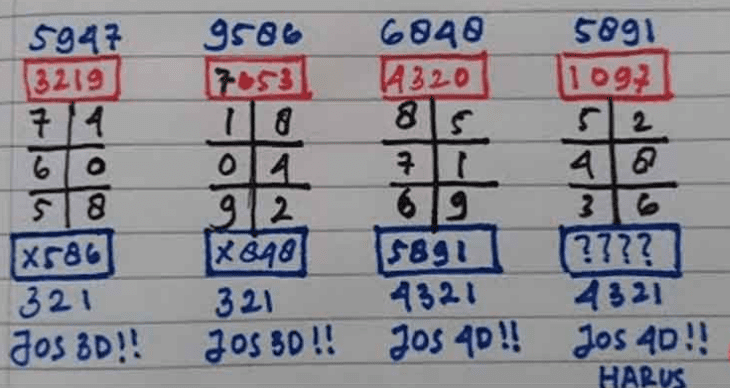 5947 9586 6848 5891
3219 7653 4320 1097
7 4 1 8 8 5 5 2
6 0 0 4 7 1 4 8
5 8 9 2 6 9 3 6
X586 X848 5891 ????
321 321 4321 4321
JOS 3D!! JOS 3D!! JOS 4D!! JOS 4D!!
HARUS